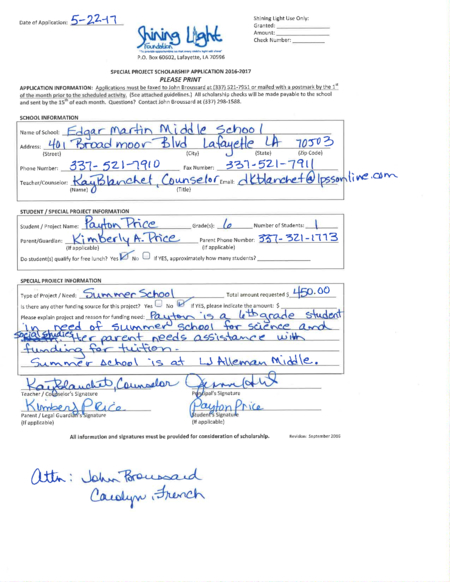 Date of Application: 5-22-17
Shining Light
Foundation
P.O. Box 60602, Lafayette, LA 70596
Shining Light Use Only:
Granted:
Amount:
Check Number:
SPECIAL PROJECT SCHOLARSHIP APPLICATION 2016-2017
PLEASE PRINT
APPLICATION INFORMATION: Applications must be faxed to John Broussard at (337) 521-7551 or mailed with a postmark by the 1st
of the month prior to the scheduled activity. (See attached guidelines.) All scholarship checks will be made payable to the school
and sent by the 15th of each month. Questions? Contact John Broussard at (337) 298-1588.
SCHOOL INFORMATION
Name of School: Edgar Martin Middle School
Address: 401 Broadmoor Blvd Lafayette LA 70503
(Street) (City) (State) (Zip Code)
Phone Number: 337-521-7910 Fax Number: 337-521-7911
Teacher/Counselor: Kay Blanchet, Counselor Email: dKblanchet@lpssonline.com
(Name) (Title)
STUDENT / SPECIAL PROJECT INFORMATION
Student / Project Name: Payton Price Grade(s): 6 Number of Students: 1
Parent/Guardian: Kimberly A. Price Parent Phone Number: 337-321-1773
(If applicable) (if applicable)
Do student(s) qualify for free lunch? Yes No If YES, approximately how many students?
SPECIAL PROJECT INFORMATION
Type of Project / Need: Summer School Total amount requested $ 450.00
Is there any other funding source for this project? Yes No If YES, please indicate the amount: $
Please explain project and reason for funding need: Payton is a 6th grade student
in need of summer school for science and
social studies. Her parent needs assistance with
funding for tuition.
Summer school is at LJ Alleman Middle.
Kay Blanchet, Counselor
Teacher / Counselor's Signature Principal's Signature
Kimberly Price Payton Price
Parent / Legal Guardian's Signature Student's Signature
(If applicable) (If applicable)
All information and signatures must be provided for consideration of scholarship. Revision: September 2005
attn: John Broussard
Carolyn French